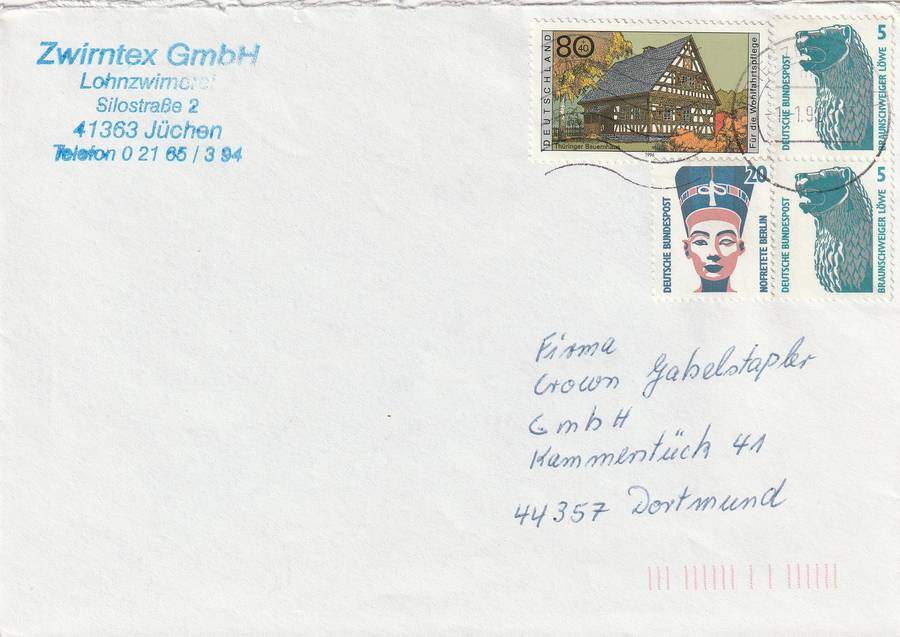 Zwirntex GmbH
Lohnzwirnerei
Silostraße 2
41363 Jüchen
Telefon 0 21 65 / 3 94
DEUTSCHLAND
80+40
Für die Wohlfahrtspflege
Thüringer Bauernhaus
1996
5
DEUTSCHE BUNDESPOST
BRAUNSCHWEIGER LÖWE
20
DEUTSCHE BUNDESPOST
NOFRETETE BERLIN
5
DEUTSCHE BUNDESPOST
BRAUNSCHWEIGER LÖWE
Firma
Crown Gabelstapler
GmbH
Kammerstück 41
44357 Dortmund